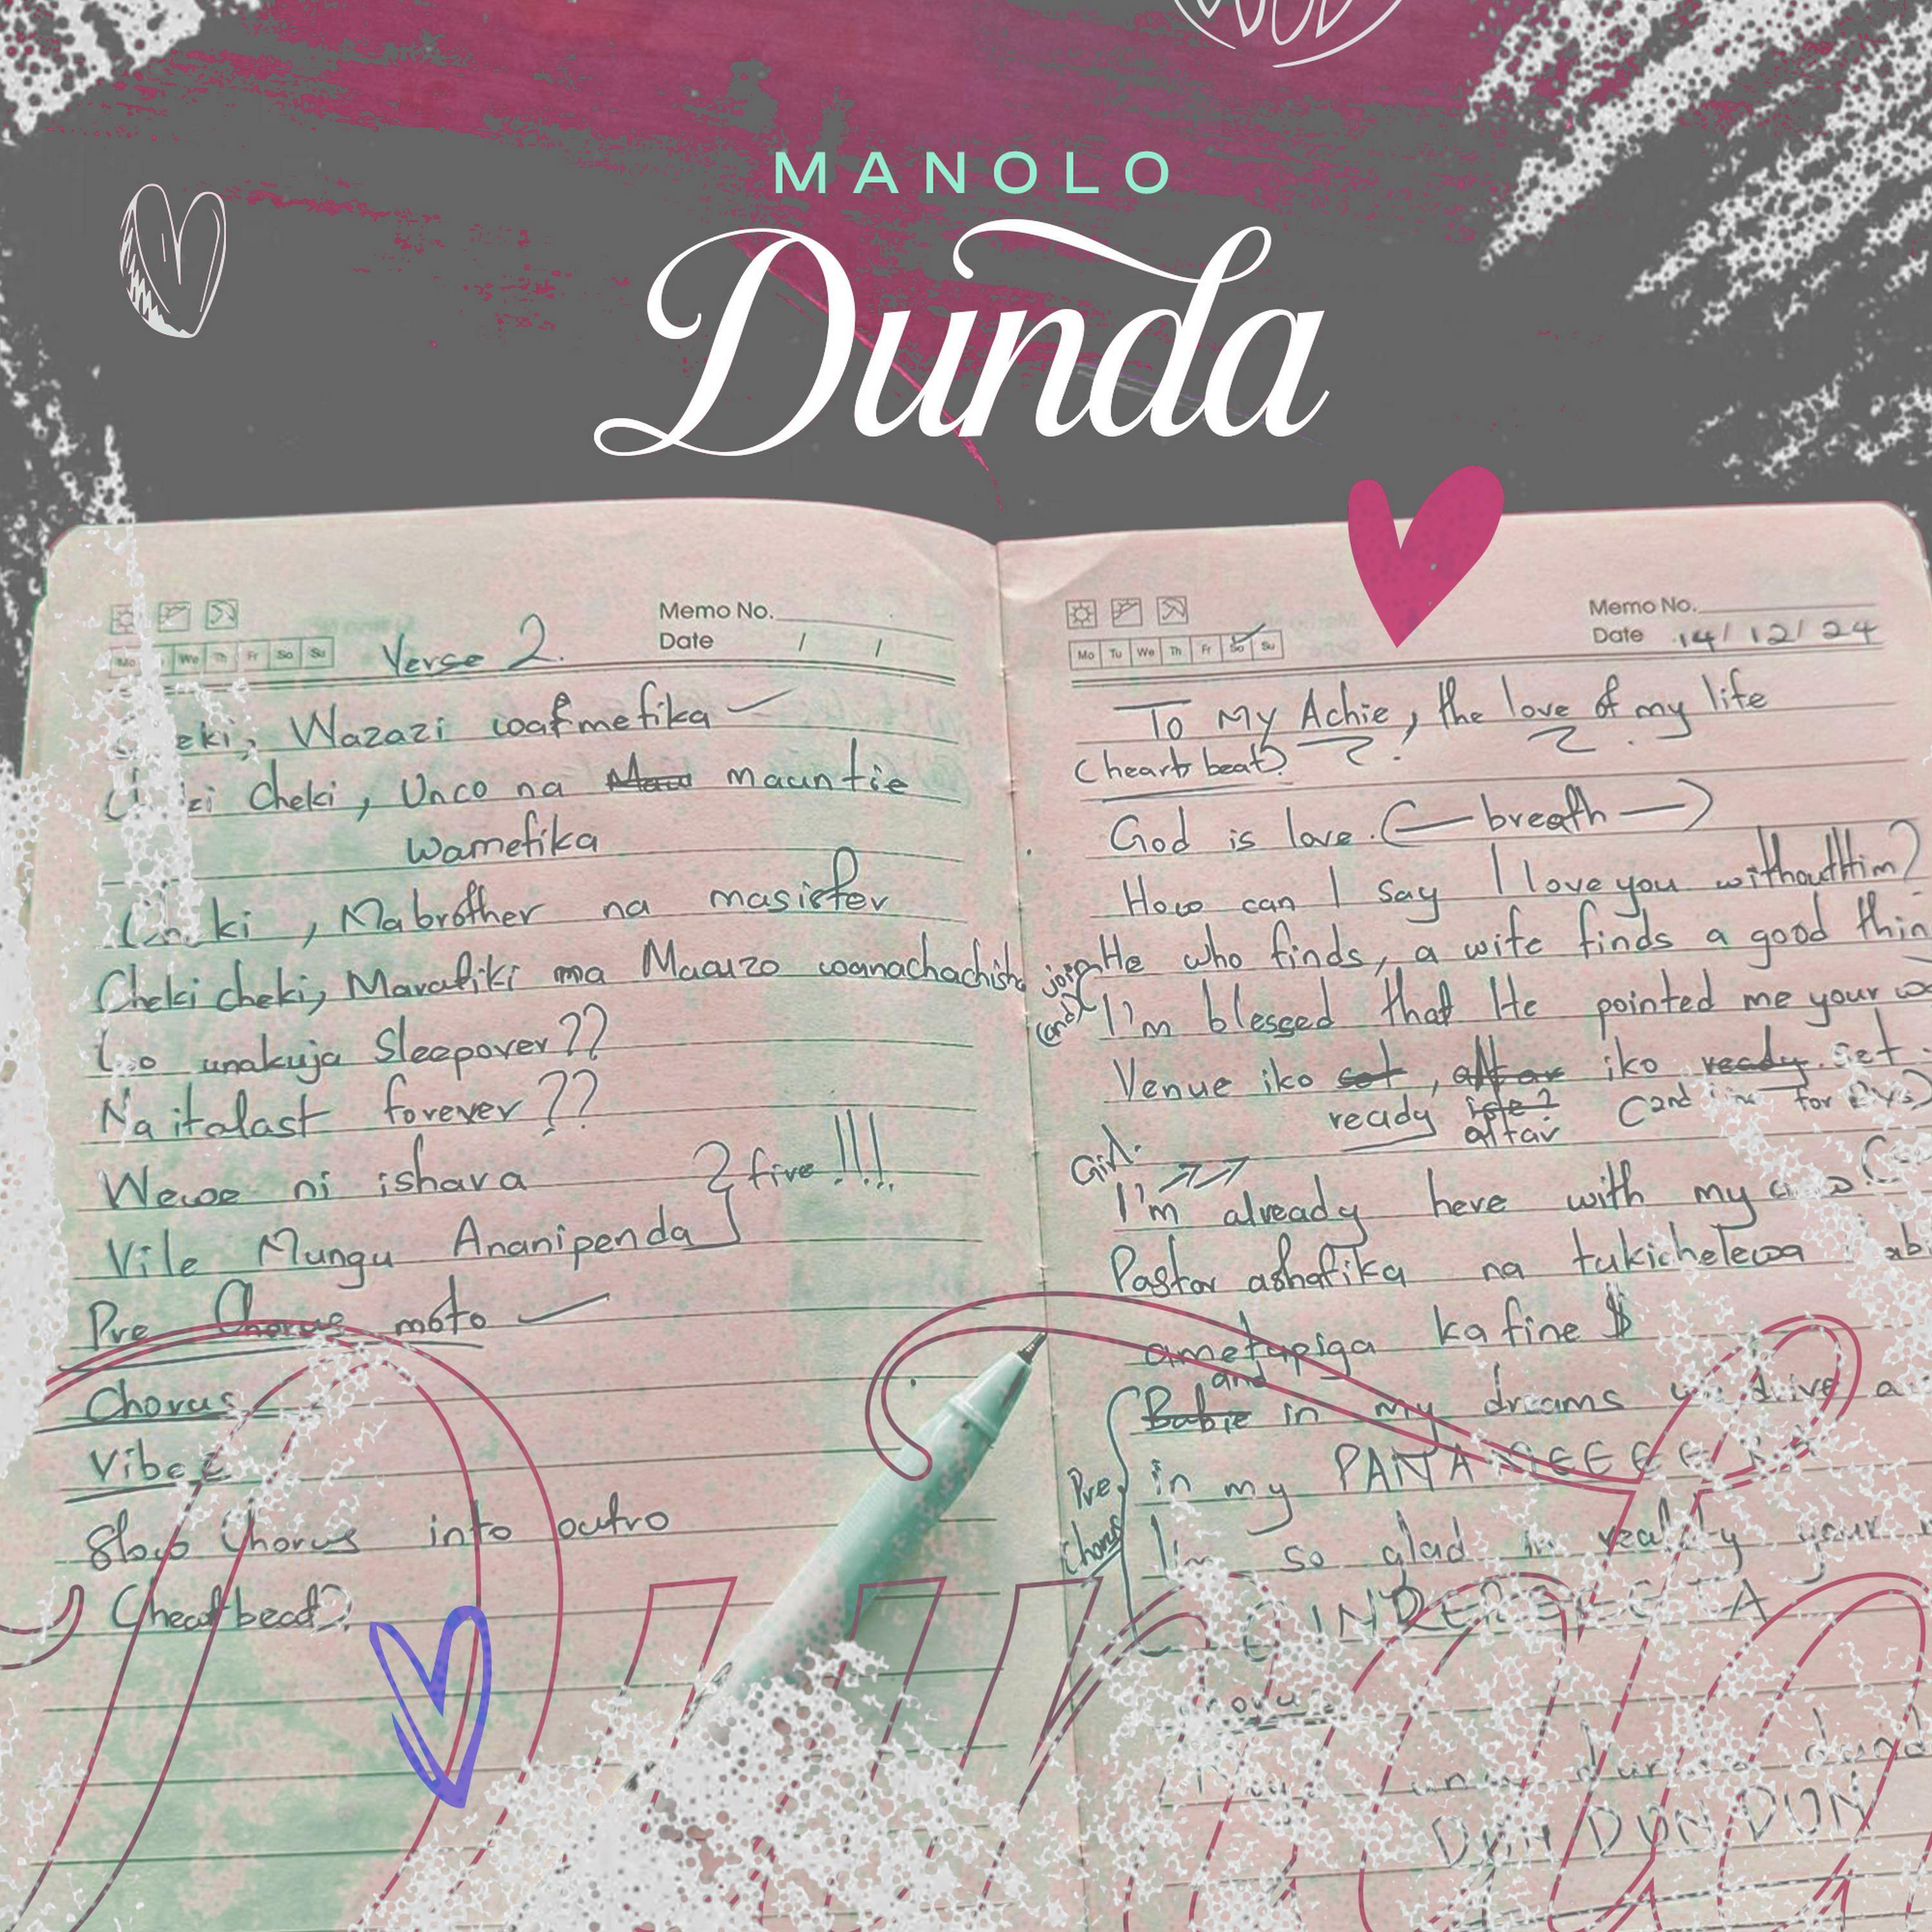 MANOLO
Dunda
Memo No.
Date / /
Mo We Th Fr Sa Su
Verse 2.
Wazazi wafmefika
Cheki, Unco na mauntie
wamefika
, Mabrother na masister
Cheki cheki, Marafiki ma Mauzo wanachachisha
unakuja Sleepover??
Na italast forever??
Wewe ni ishara
Vile Mungu Ananipenda
2 five!!!
Pre Chorus moto
Chorus
Vibez
Slow Chorus into outro
(heartbeat)
Memo No.
Date 14/12/24
Mo Tu We Th Fr Sa Su
To My Achie, the love of my life
(heart beat)
God is love. (— breath —)
How can I say I love you without Him?
join
He who finds, a wife finds a good thin
(and)
I'm blessed that He pointed me your
Venue iko set, altar iko ready set
ready isle? (2nd for
altar
Girl:
I'm already here with my
Pastor ashafika na tukichelewa
ametupiga ka fine $
and
Babie in my dreams drive a
Pre Chorus
in my PANAMEEEERA
I'm so glad in reality your
dunda
DUN DUN DUN